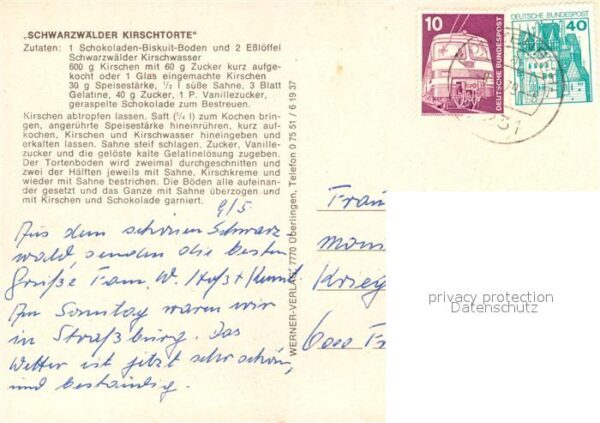 „SCHWARZWÄLDER KIRSCHTORTE“
Zutaten: 1 Schokoladen-Biskuit-Boden und 2 Eßlöffel
Schwarzwälder Kirschwasser
600 g Kirschen mit 60 g Zucker kurz aufge-
kocht oder 1 Glas eingemachte Kirschen
30 g Speisestärke, ½ l süße Sahne, 3 Blatt
Gelatine, 40 g Zucker, 1 P. Vanillezucker,
geraspelte Schokolade zum Bestreuen.
Kirschen abtropfen lassen. Saft (¼ l) zum Kochen brin-
gen, angerührte Speisestärke hineinrühren, kurz auf-
kochen, Kirschen und Kirschwasser hineingeben und
erkalten lassen. Sahne steif schlagen, Zucker, Vanille-
zucker und die gelöste kalte Gelatinelösung zugeben.
Der Tortenboden wird zweimal durchgeschnitten und
zwei der Hälften jeweils mit Sahne, Kirschkreme und
wieder mit Sahne bestrichen. Die Böden alle aufeinan-
der gesetzt und das Ganze mit Sahne überzogen und
mit Kirschen und Schokolade garniert.
9/5.
Aus dem schönen Schwarz
wald senden die besten
Grüße Fam. W.
Am Sonntag waren wir
in Straßburg. Das
Wetter ist jetzt sehr schön,
und beständig.
WERNER-VERLAG, 7770 Überlingen, Telefon 0 75 51 / 6 19 37
10
DEUTSCHE BUNDESPOST
DEUTSCHE BUNDESPOST
40
Krieg
6000
privacy protection
Datenschutz